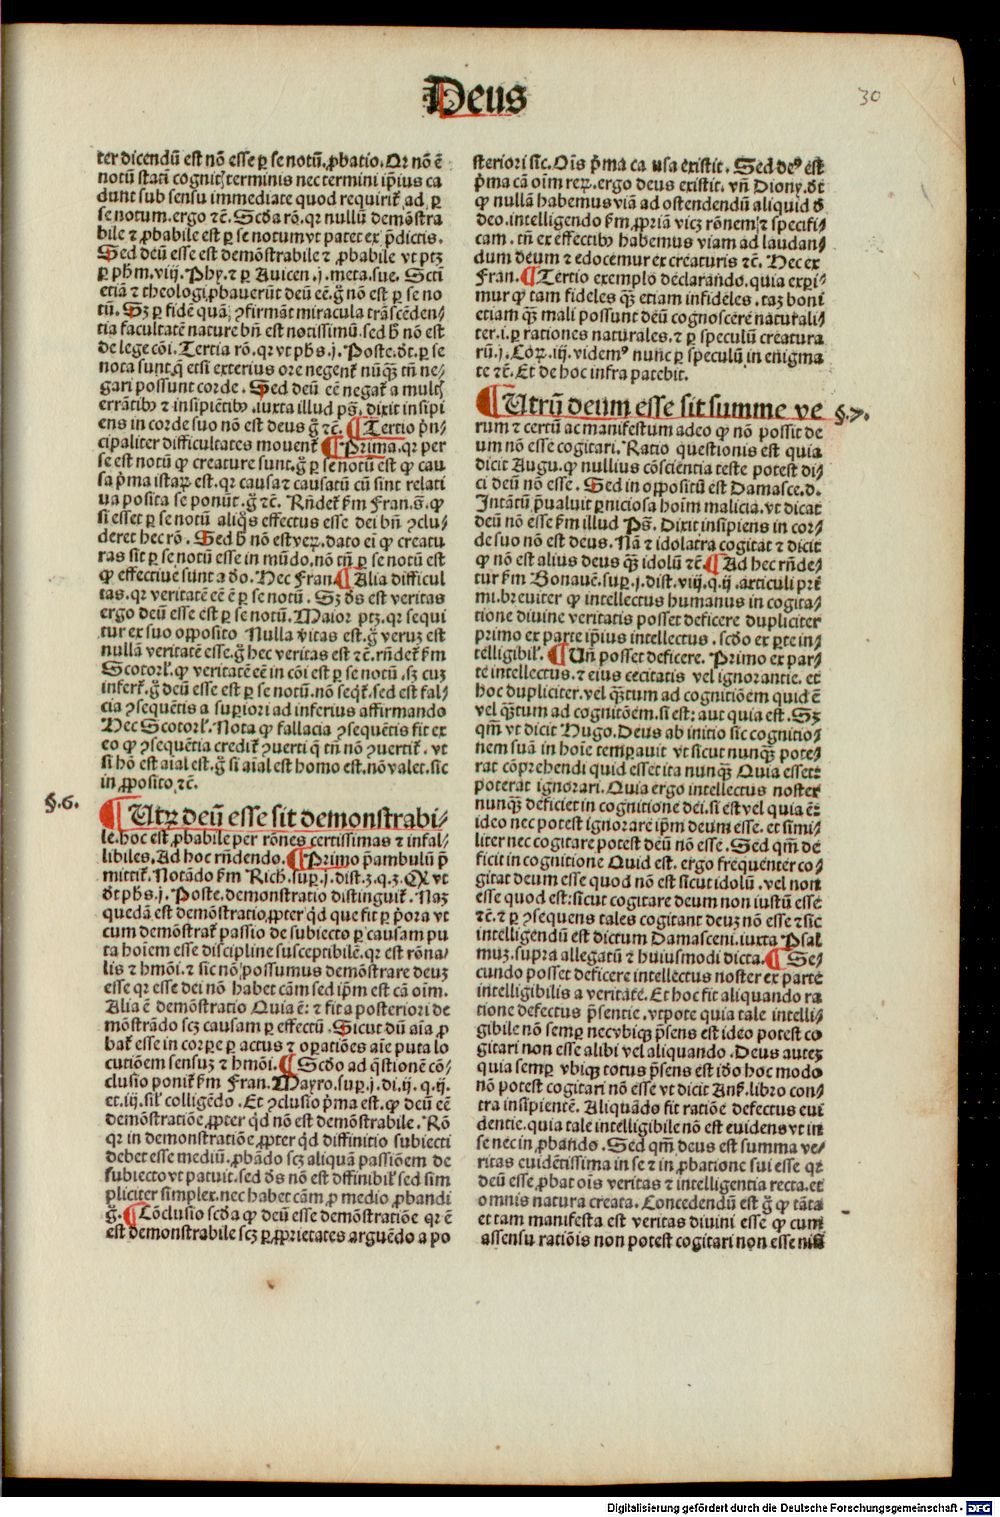 Deus
30
ter dicendū est nō esse ꝑ se notū. ꝓbatio. Qr nō ē
notū statī cognitꝭ terminis nec termini ip̄ius ca
dunt sub sensu immediate quod requirit̄ ad ꝑ
se notum. ergo ⁊c̄. Scd̄a rō. qr nullū demōstra
bile ⁊ ꝓbabile est ꝑ se notum vt patet ex p̄dictis.
Sed deū esse est demōstrabile ⁊ ꝓbabile vt ptꝫ
ꝑ ph̄m. viij. Phy. ⁊ ꝑ Auicen. j. meta. sue. Scti
etiā ⁊ theologi ꝓbauerūt deū eē. g̊ nō est ꝑ se no
tū. Sꝫ ꝑ fidē quā ꝯfirmāt miracula trāscēden⸗
tia facultatē nature bn̄ est notissimū. sed h̄ nō est
de lege cōi. Tertia rō. qr vt ph̄s. j. Poste. d̄t. ꝑ se
nota sunt q̄ etsi exterius ore negent̄ nūqꝫ tn̄ ne⸗
gari possunt corde. Sed deū eē negat̄ a multꝭ
errātibꝰ ⁊ insipiētibꝰ. iuxta illud ps̄. dixit insipi
ens in corde suo nō est deus g̊ ⁊c̄. ¶ Tertio p̄n⸗
cipaliter difficultates mouent̄ ¶ Prima. qr per
se est notū ꝙ creature sunt. g̊ ꝑ se notū est ꝙ cau
sa p̄ma istaꝝ est. qr causa ⁊ causatū cū sint relati
ua posita se ponūt. g̊ ⁊c̄. Rn̄det ẜm Fran. s̄. ꝙ
si esset ꝑ se notū aliqͦs effectus esse dei bn̄ ꝯclu⸗
deret hec rō. Sed h̄ nō est veꝝ. dato ei ꝙ creatu
ras sit ꝑ se notū esse in mūdo. nō tn̄ ꝑ se notū est
ꝙ effectiue sunt a deo. Hec Fran. ¶ Alia difficul
tas. qr veritatē eē ē ꝑ se notū. Sꝫ ds̄ est veritas
ergo deū esse est ꝑ se notū. Maior ptꝫ. qr sequi
tur ex suo opposito Nulla v̄itas est. g̊ veruꝫ est
nullā veritatē esse. g̊ hec veritas est ⁊c̄. rn̄det̄ ẜm
Scotorꝭ. ꝙ veritatē eē in cōi est ꝑ se notū. sꝫ cuꝫ
infert̄. g̊ deū esse est ꝑ se notū. nō seqt̄. sed est fal⸗
cia ꝯsequētis a superiori ad inferius affirmando
Hec Scotorꝭ. Nota ꝙ fallacia ꝯsequētis fit ex
eo ꝙ ꝯsequētia credit̄ ꝯuerti q̄ tn̄ nō ꝯuertit̄. vt
si hō est aīal est. g̊ si aīal est homo est. nō valet. sic
in ꝓposito ⁊c̄.
§.6.
¶ Utꝝ deū esse sit demonstrabi⸗
le. hoc est ꝓbabile per rōnes certissimas ⁊ infal⸗
libiles. Ad hoc rn̄dendo. ¶ Primo p̄ambulū p̄
mittit̄. Notādo ẜm Rich. suꝑ. j. dist. 3. q. 3. Qꝫ vt
d̄t ph̄s. j. Poste. demonstratio distinguit̄. Naꝫ
quedā est demōstratio ꝓpter qͥd que fit ꝑ p̄ora vt
cum demōstrat̄ passio de subiecto ꝑ causam pu
ta hoīem esse discipline susceptibilē. qr est rōna⸗
lis ⁊ hmōi. ⁊ sic nō possumus demōstrare deuꝫ
esse qr esse dei nō habet cām sed ip̄m est cā oīm.
Alia ē demōstratio Quia ē: ⁊ fit a posteriori de
mōstrādo scꝫ causam ꝑ effectū. Sicut dū aīa ꝓ
bat̄ esse in corpe ꝑ actus ⁊ oꝑatiōes aīe puta lo
cutiōem sensuꝫ ⁊ hmōi. ¶ Scd̄o ad q̄stionē cō⸗
clusio ponit̄ ẜm Fran. Mayro. suꝑ. j. di. ij. q. ij.
et. iij. sil̄ colligēdo. Et ꝯclusio p̄ma est. ꝙ deū eē
demōstratiōe ꝓpter qͥd nō est demōstrabile. Rō
qr in demonstratiōe ꝓpter qͥd diffinitio subiecti
debet esse mediū. ꝓbādo scꝫ aliquā passiōem de
subiecto vt patuit. sed ds̄ nō est diffinibil̄ sed sim
pliciter simplex. nec habet cām ꝓ medio ꝓbandi
g̊. ¶ Cōclusio scd̄a ꝙ deū esse demōstratiōe qr ē
est demonstrabile scꝫ ꝑ ꝓprietates arguēdo a po
steriori sic. Oīs p̄ma causa existit. Sed deꝰ est
p̄ma cā oīm reꝝ. ergo deus existit. vn̄ Diony. d̄t
ꝙ nullā habemus viā ad ostendendū aliquid d̄
deo. intelligendo ẜm ꝓpriā vicꝫ rōnem ⁊ specifi⸗
cam. tn̄ ex effectibꝰ habemus viam ad laudan⸗
dum deum ⁊ edocemur ex creaturis ⁊c̄. Hec ex
Fran. ¶ Tertio exemplo declarando. quia exꝑi⸗
mur ꝙ tam fideles qꝫ etiam infideles. taꝫ boni
etiam qꝫ mali possunt deū cognoscere naturali⸗
ter. i. ꝑ rationes naturales. ⁊ ꝑ speculū creatura
rū. j. Coꝝ. iij. videmꝰ nunc ꝑ speculū in enigma
te ⁊c̄. Et de hoc infra patebit.
¶ Utrū deum esse sit summe ve §.7.
rum ⁊ certū ac manifestum adeo ꝙ nō possit de
um nō esse cogitari. Ratio questionis est quia
dicit Augu. ꝙ nullius cōscientia teste potest di⸗
ci deū nō esse. Sed in oppositū est Damasce. d.
Intātū p̄ualuit perniciosa hoīm malicia. vt dicāt
deū nō esse ẜm illud Ps̄. Dixit insipiens in cor⸗
de suo nō est deus. Nā ⁊ idolatra cogitat ⁊ dicit
ꝙ nō est alius deus qꝫ idolū ⁊c̄. ¶ Ad hec rn̄de⸗
tur ẜm Bonauē. suꝑ. j. dist. viij. q. ij. articuli pri
mi. breuiter ꝙ intellectus humanus in cogita⸗
tione diuine veritatis posset deficere dupliciter
primo ex parte ip̄ius intellectus. scd̄o ex ꝑte in⸗
telligibil̄. ¶ Un̄ posset deficere. Primo ex par⸗
te intellectus. ⁊ eius cecitatis vel ignorantie. et
hoc dupliciter. vel qꝫtum ad cognitiōem quid ē
vel qꝫtum ad cognitōem. si est: aut quia est. Sꝫ
qm̄ vt dicit Hugo. Deus ab initio sic cognitio⸗
nem suā in hoīe temperauit vt sicut nunqꝫ pote⸗
rat cōprehendi quid esset ita nunqꝫ Quia esset:
poterat ignorari. Quia ergo intellectus noster
nunqꝫ deficiet in cognitione dei. si est vel quia ē:
ideo nec potest ignorare ip̄m deum esse. et simi⸗
liter nec cogitare potest deū nō esse. Sed qm̄ de
ficit in cognitione Quid est. ergo frequenter co⸗
gitat deum esse quod nō est sicut idolū. vel non
esse quod est: sicut cogitare deum non iustū esse
⁊c̄. ⁊ ꝑ ꝯsequens tales cogitant deuꝫ nō esse ⁊ sic
intelligendū est dictum Damasceni. iuxta Psal
muꝫ. supra allegatū ⁊ huiusmodi dicta. ¶ Se⸗
cundo posset deficere intellectus noster ex parte
intelligibilis a veritate. Et hoc fit aliquando ra
tione defectus p̄sentie. vtpote quia tale intelli⸗
gibile nō semꝑ nec vbiqꝫ p̄sens est ideo potest co
gitari non esse alibi vel aliquando. Deus auteꝫ
quia semꝑ vbiqꝫ totus p̄sens est id̄o hoc modo
nō potest cogitari nō esse vt dicit Ans̄. libro con⸗
tra insipientē. Aliquādo fit ratiōe defectus eui
dentie. quia tale intelligibile nō est euidens vt in
se nec in ꝓbando. Sed qm̄ deus est summa ve⸗
ritas euidētissima in se ⁊ in ꝓbatione sui esse qr
deū esse ꝓbat oīs veritas ⁊ intelligentia recta. et
omnis natura creata. Concedendū est g̊ ꝙ tāta
et tam manifesta est veritas diuini esse ꝙ cum
assensu ratiōis non potest cogitari non esse nisi
Digitalisierung gefördert durch die Deutsche Forschungsgemeinschaft - DFG